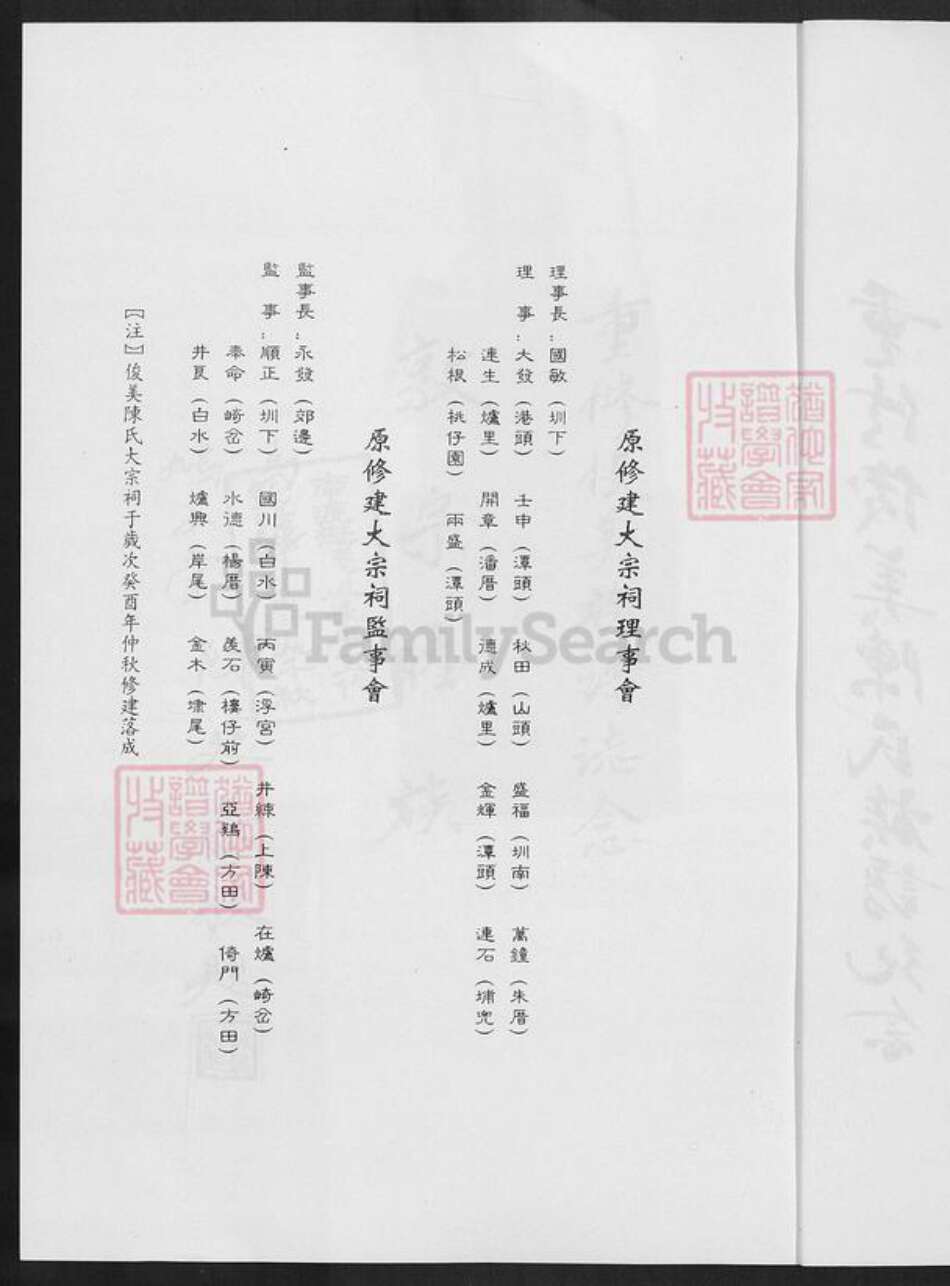 原修建大宗祠理事會
理事長:國敏(圳下)
理 事:大發(港頭) 壬申(潭頭) 秋田(山頭) 盛福(圳南) 萬鐘(朱厝)
連生(爐里) 開章(潘厝) 德成(爐里) 金輝(潭頭) 連石(埔兜)
松根(桃仔園) 兩盛(潭頭)
原修建大宗祠監事會
監事長:永發(郊邊)
監 事:順正(圳下) 國川(白水) 丙寅(浮宮) 井棟(上陳) 在爐(崎岔)
泰命(崎岔) 水德(楊厝) 羨石(樓仔前) 亞鷄(方田) 倚門(方田)
井艮(白水) 爐興(岸尾) 金木(埭尾)
【注】俊美陳氏大宗祠于歲次癸酉年仲秋修建落成
FamilySearch